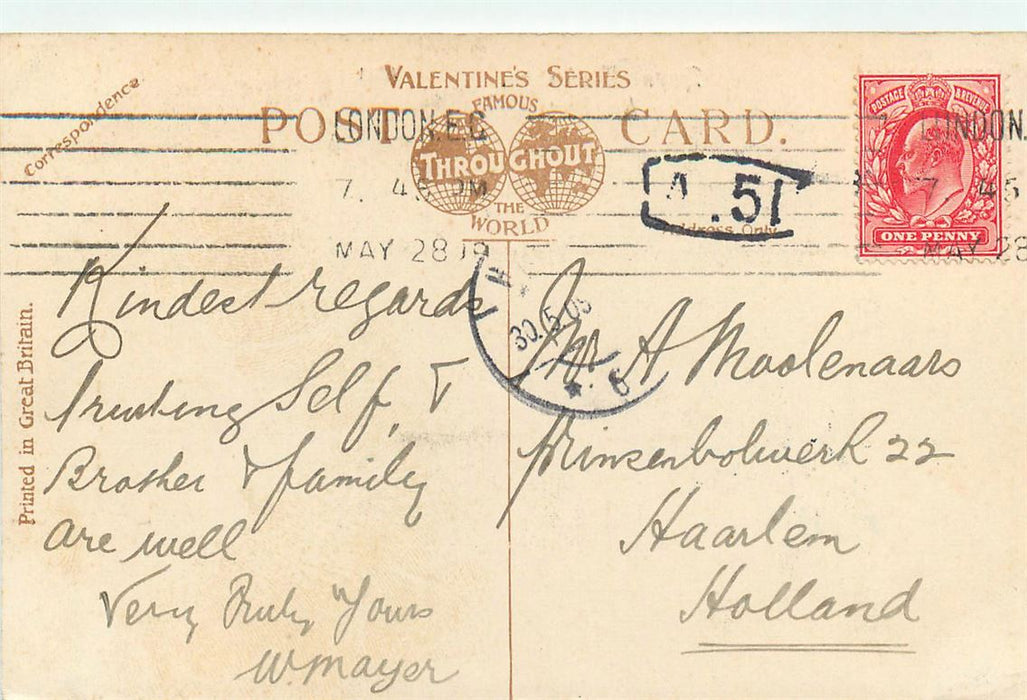 VALENTINE'S SERIES
Correspondence
POST CARD.
FAMOUS
THROUGHOUT
THE
WORLD
LONDON.E.C
7. 45 PM
MAY 28 09
LONDON
7. 45
MAY 28
POSTAGE & REVENUE
ONE PENNY
A .51
Address Only
30.5.09
6
Printed in Great Britain.
Kindest regards
Trusting Self, &
Brother & family
are well
Very Truly Yours
W. Mayer
Mr A Moolenaars
Prinsenbolwerk 22
Haarlem
Holland